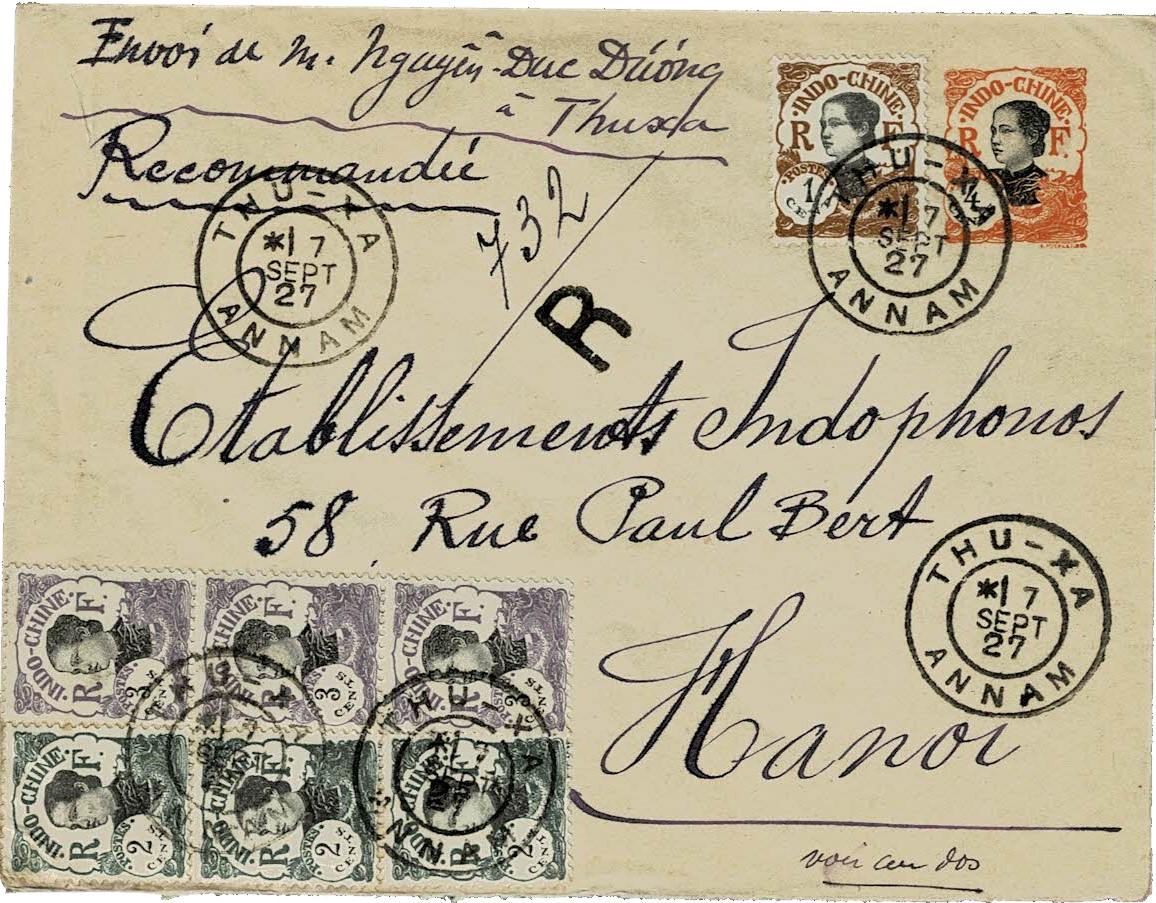 Envoi de M. Nguyên-Duc Dương
à Thuxa
Recommandée
732
R
INDO-CHINE
R F
POSTES
1
CENT
INDO-CHINE
R F.
4
THU-XA
*1 7
SEPT
27
ANNAM
THU-XA
*1 7
SEPT
27
ANNAM
Etablissements Indophonos
58 Rue Paul Bert
Hanoi
THU-XA
*1 7
SEPT
27
ANNAM
INDO-CHINE.
R F.
POSTES
3
CENTS
INDO-CHINE
R F.
3
CENTS
INDO-CHINE
R F.
3
CENTS
INDO-CHINE
R F.
POSTES.
2
CENTS
INDO-CHINE
R F.
POSTES
2
CENTS
INDO-CHINE
R F.
2
CENTS
THU-XA
*1 7
voir au dos